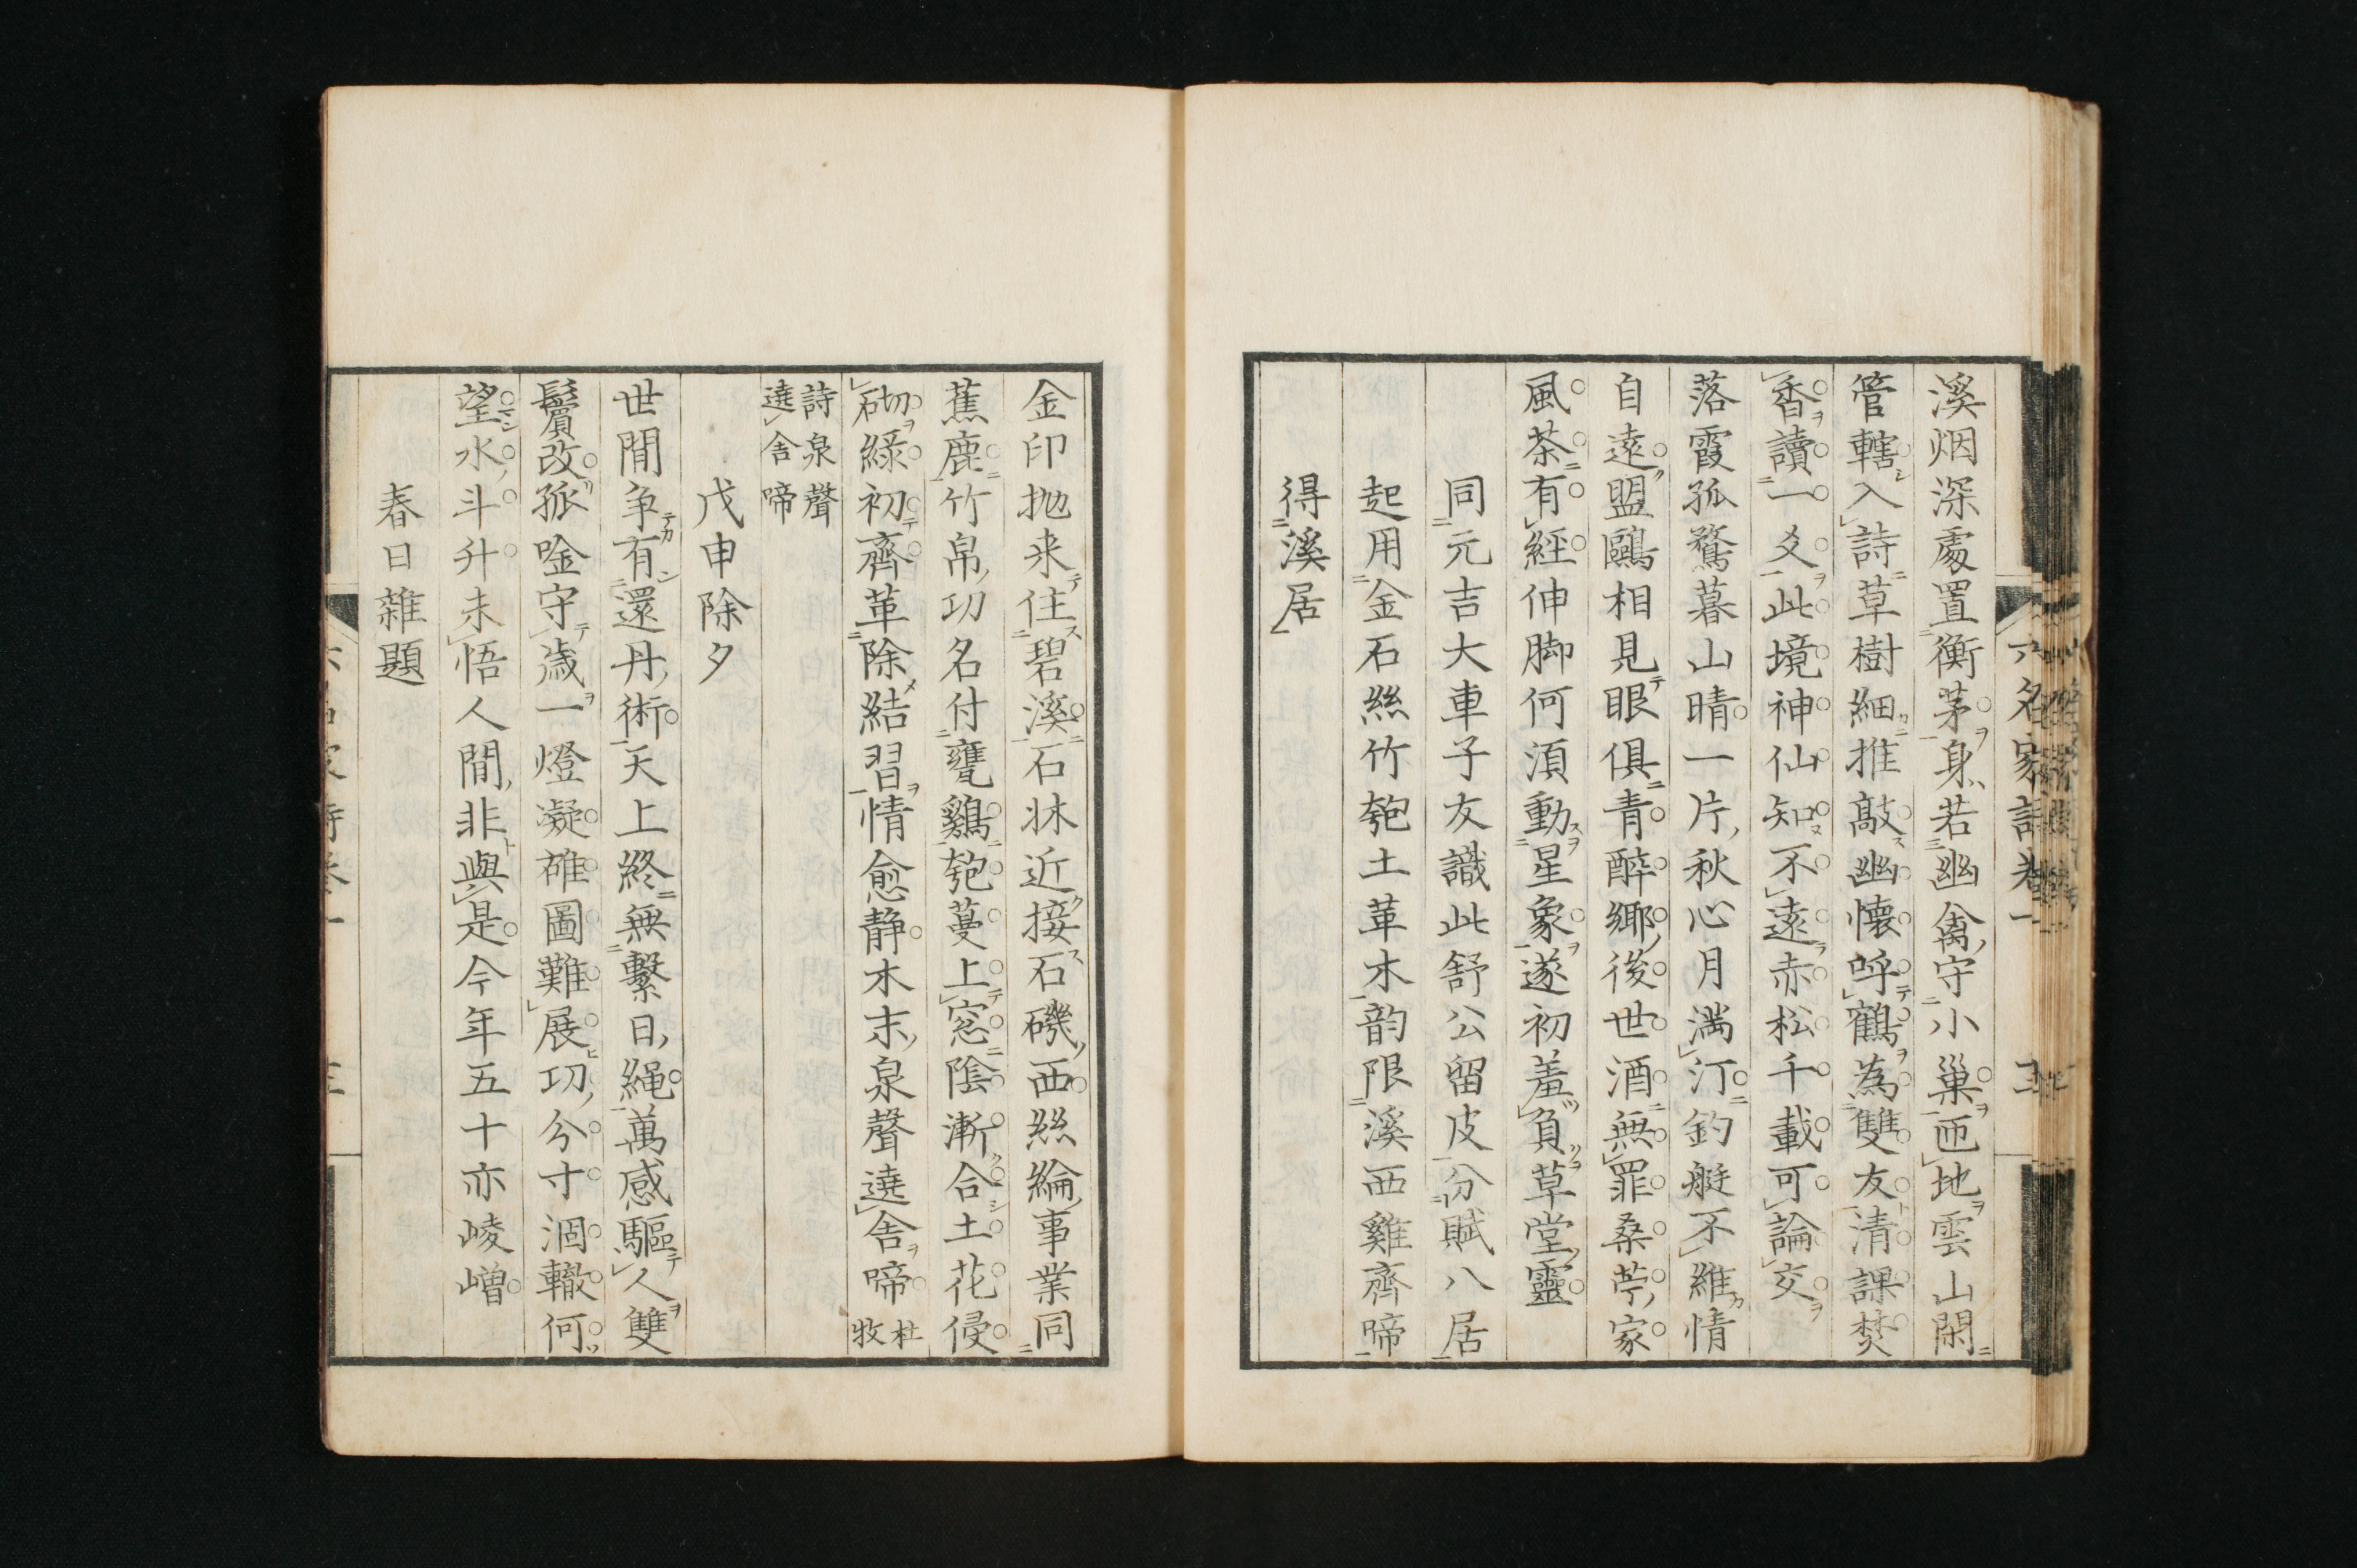 溪烟深處置衡茅身若幽禽守小巢匝地雲山閑
管轄入詩草樹細推敲幽懷呼鶴為雙友清課焚
香讀一爻此境神仙知不遠赤松千載可論交
落霞孤鶩暮山晴一片秋心月満汀釣艇不維情
自遠盟鷗相見眼俱青醉郷後世酒無罪桑苧家
風茶有經伸脚何湏動星象遂初羞負草堂靈
同元吉大車子友識此舒公留皮分賦八居
起用金石絲竹匏土革木韵限溪西雞齊啼
得溪居
六名家詩卷一
三
金印抛来住碧溪石牀近接石磯西絲綸事業同
蕉鹿竹帛功名付甕鷄匏蔓上窓陰漸合土花侵
砌綠初齊革除結習情愈静木末泉聲遶舍啼 杜牧
詩泉聲
遶舍啼
戊申除夕
世間争有還丹術天上終無繫日繩萬感驅人雙
鬢改孤唫守歳一燈凝碓圖難展功分寸涸轍何
望水斗升未悟人間非與是今年五十亦崚嶒
春日雜題